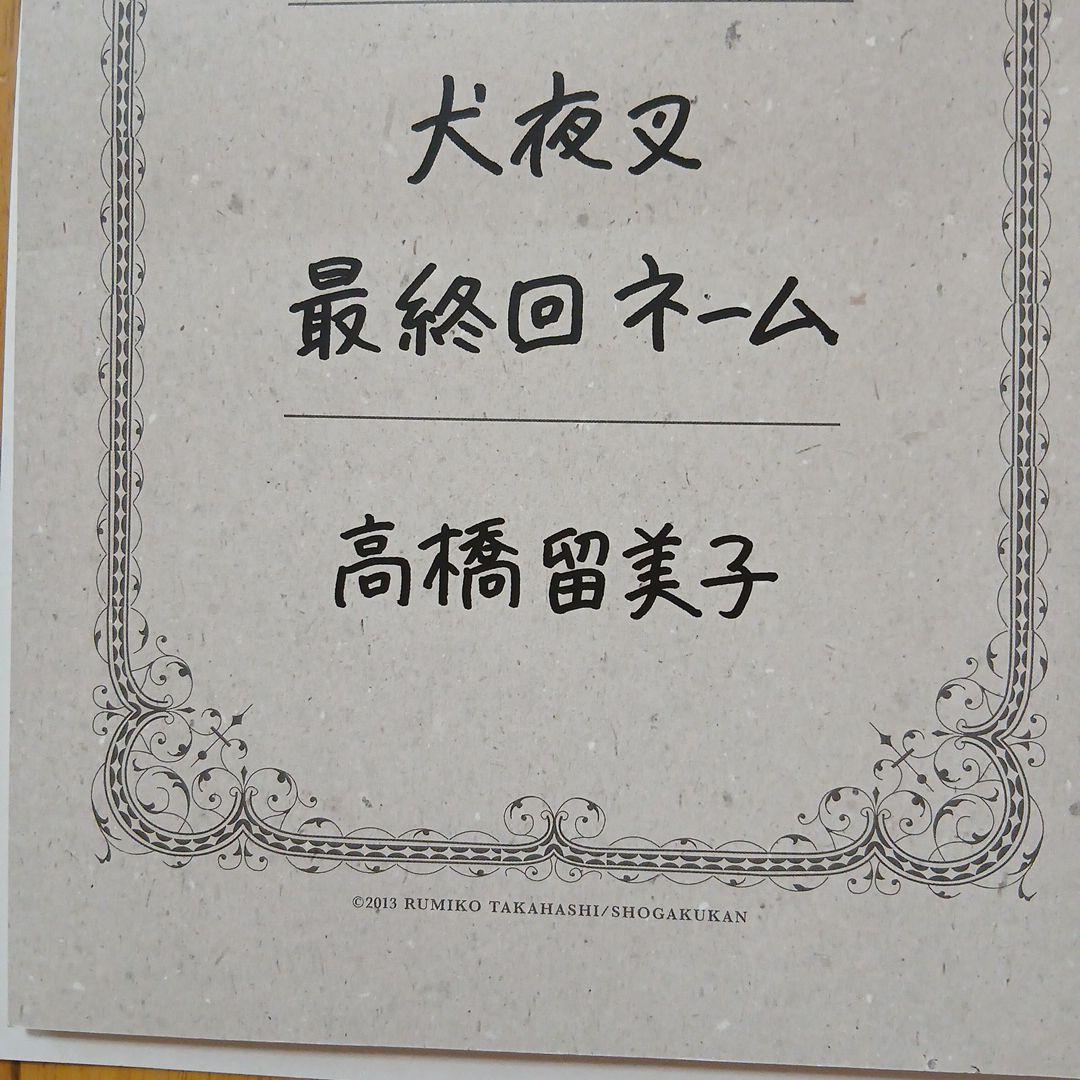 犬夜叉
最終回 ネーム
高橋 留美子
©2013 RUMIKO TAKAHASHI/SHOGAKUKAN